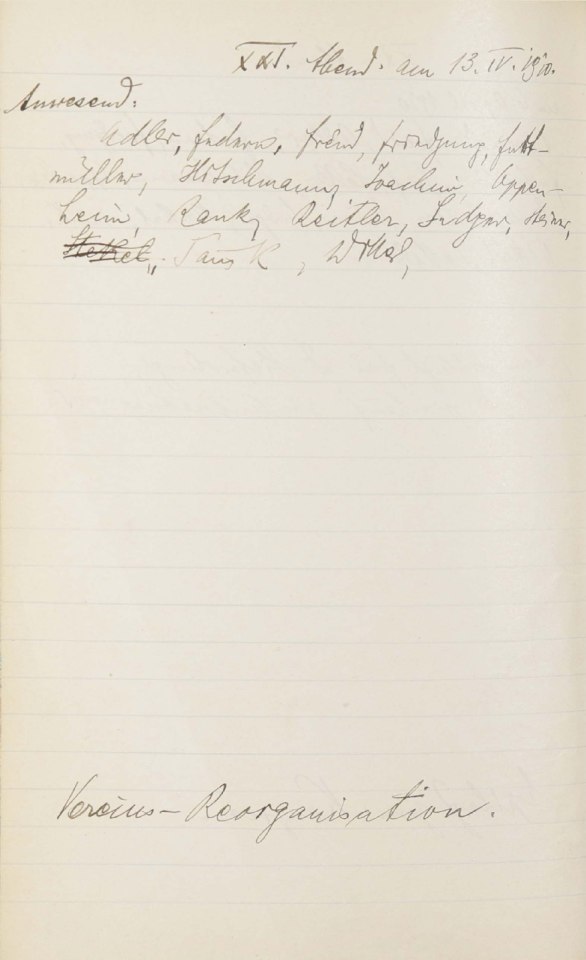 XXI. Abend. am 13. IV. 1910.
Anwesend:
Adler, Federn, Freud, Friedjung, Furt-
müller, Hitschmann, Joachim, Oppen-
heim, Rank, Reitler, Sadger, Steiner,
Stekel,, Tausk, Wittels,
Vereins-Reorganisation.